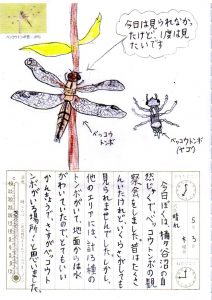 今日は見られなか
ったけど、1度は見
たいです
ベッコウ
トンボ
ベッコウトンボ
(ヤゴ)
今日ぼくは、桶ヶ谷沼の自
然じゅくでベッコウトンボの観
察会をしました。昔はたくさ
んいたけれど、いくらさがしても
見られませんでした。しかし、
他のエリアには、計13種の
トンボがいて、地面からは水
がわいていたので、とてもいい
かんきょうで、さすがベッコウト
ンボがいる場所と思いました。
晴れ
5
3